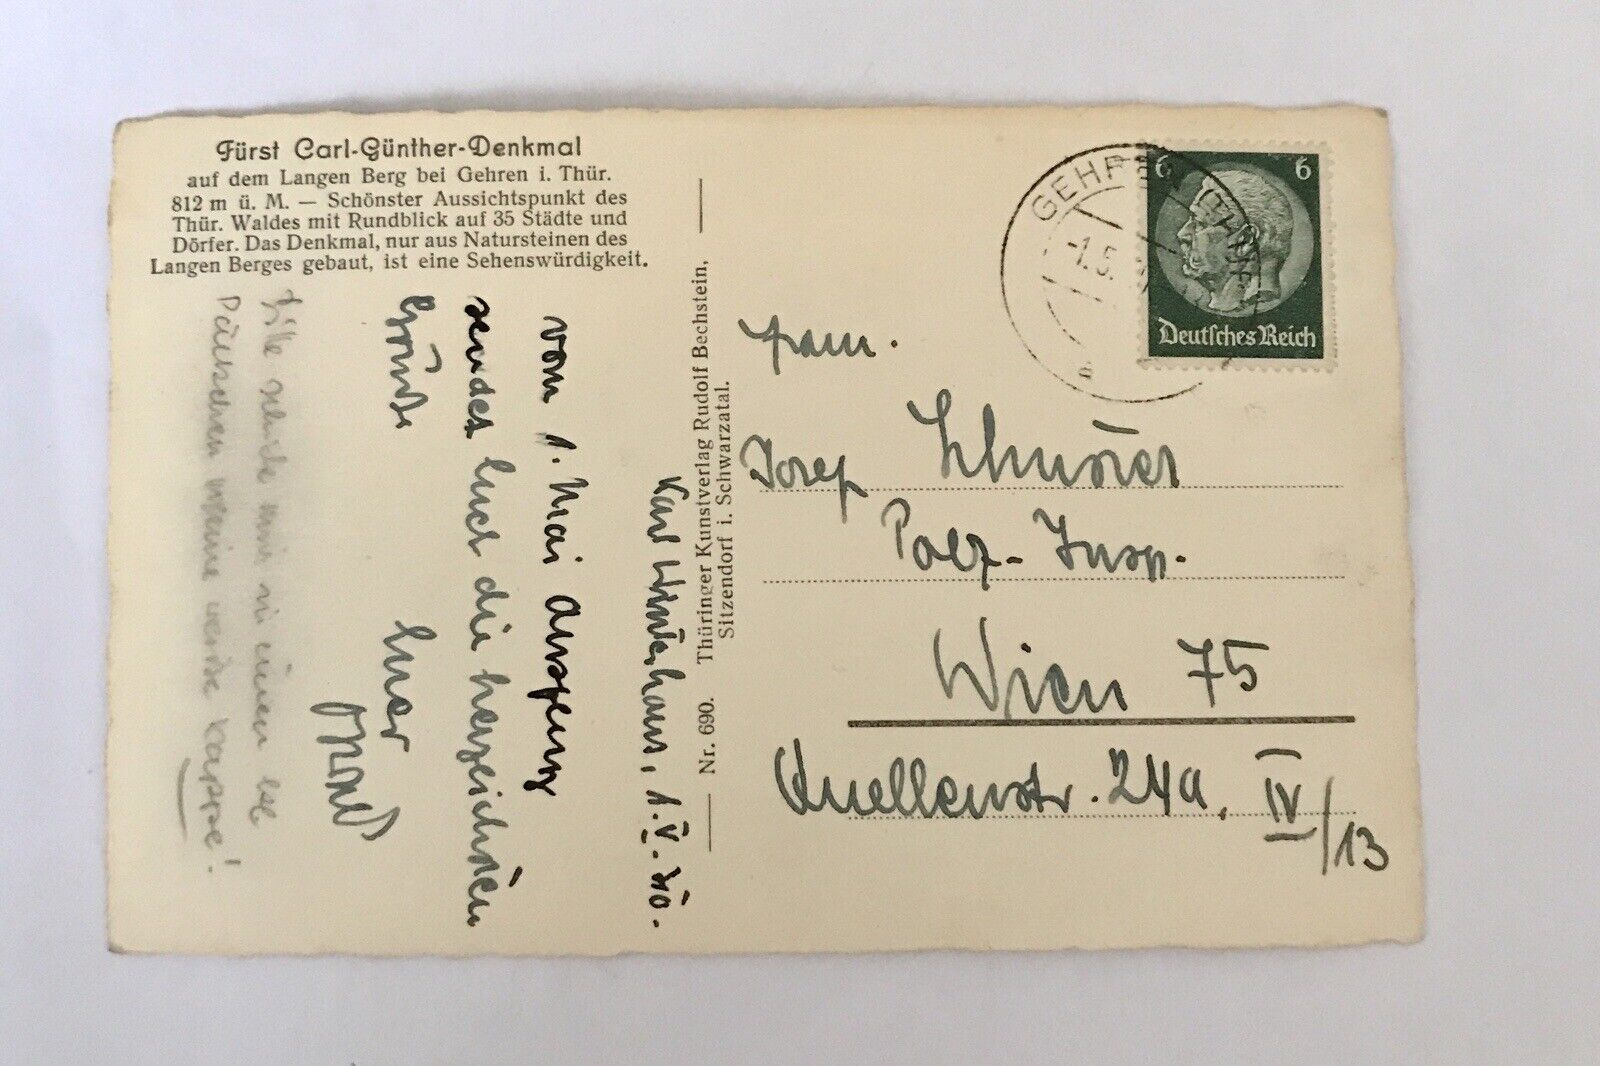 Fürst Carl-Günther-Denkmal
auf dem Langen Berg bei Gehren i. Thür.
812 m ü. M. — Schönster Aussichtspunkt des
Thür. Waldes mit Rundblick auf 35 Städte und
Dörfer. Das Denkmal, nur aus Natursteinen des
Langen Berges gebaut, ist eine Sehenswürdigkeit.
1.V.40.
vom 1. Mai Ausflug
sendet Euch die herzlichsten
Grüße
Euer
Bitte schicke mir in einem
Päckchen meine weiße Kappe!
Nr. 690. Thüringer Kunstverlag Rudolf Bechstein,
Sitzendorf i. Schwarzatal.
GEHREN (THÜR)
-1.5.
6 6
Deutsches Reich
Fam.
Josef
Polz-Insp.
Wien 75
Quellenstr. 24a, IV/13